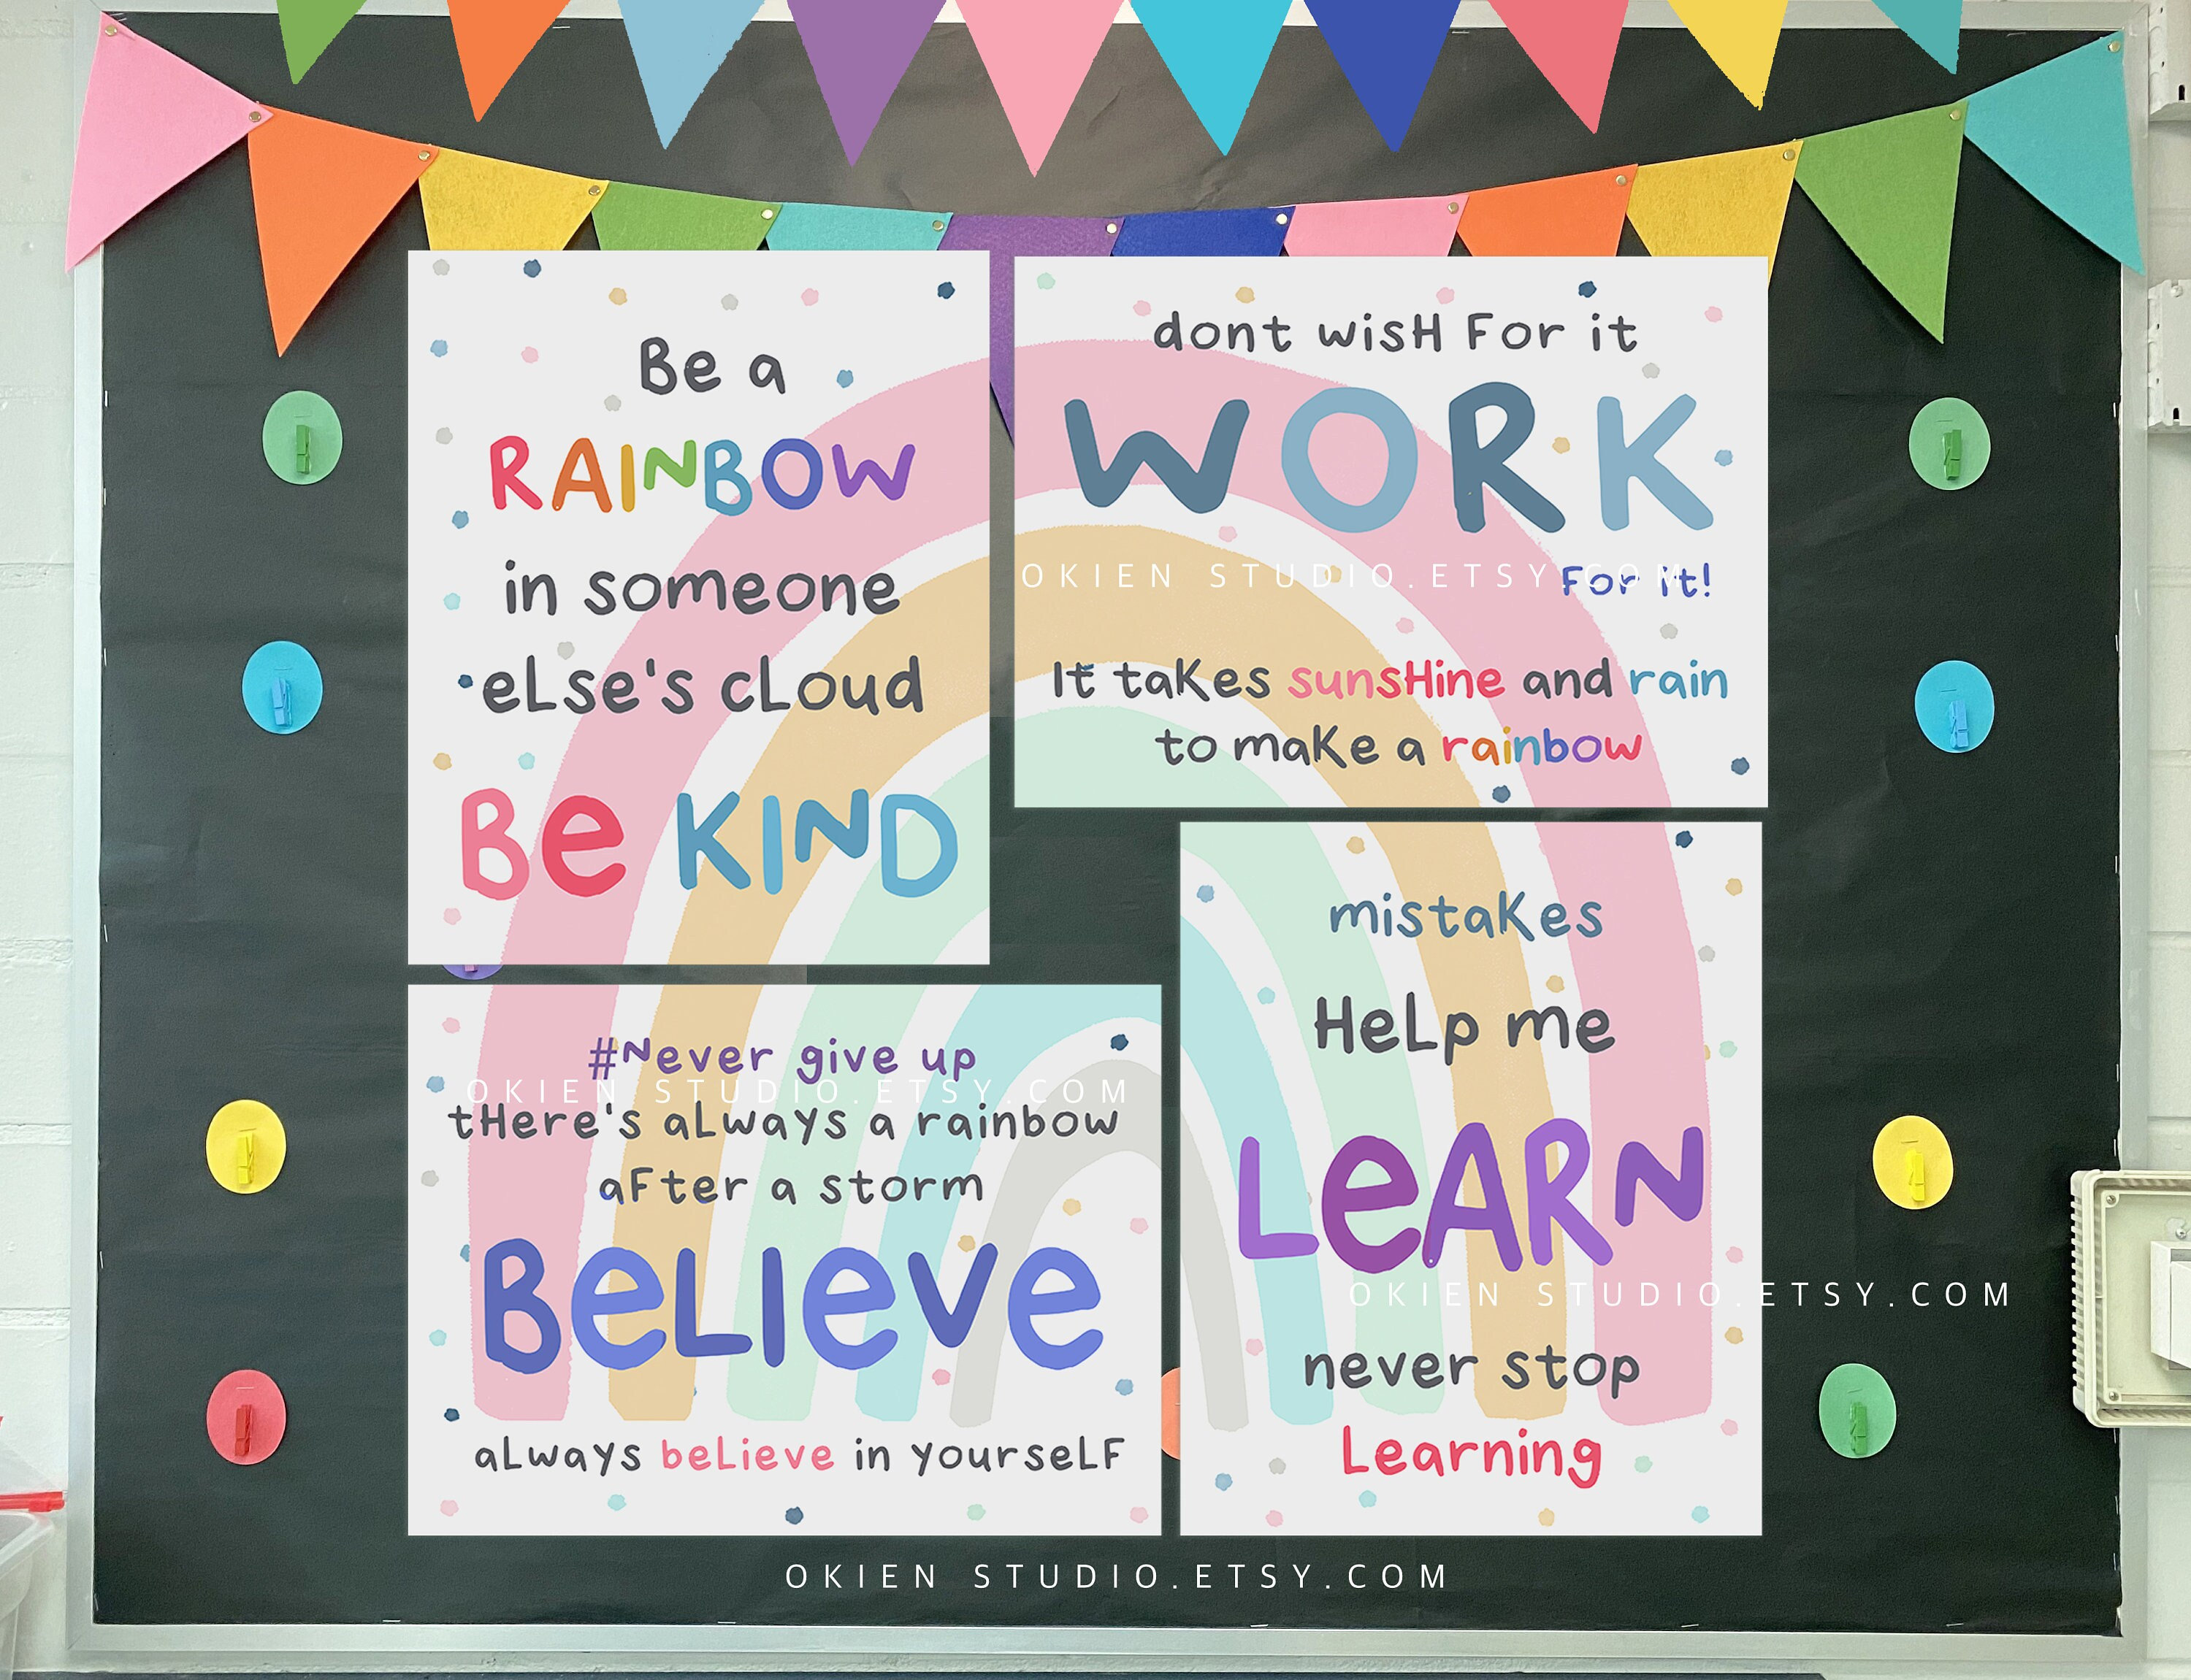 Be a
RAINBOW
in someone
eLse's cLoud
Be KIND
dont wisH For it
WORK
For it!
OKIEN STUDIO.ETSY.COM
It taKes sunsHine and rain
to maKe a rainbow
#Never give up
OKIEN STUDIO.ETSY.COM
tHere's aLways a rainbow
aFter a storm
BeLIeve
aLways beLieve in yourseLF
mistaKes
HeLp me
LeARN
OKIEN STUDIO.ETSY.COM
never stop
Learning
OKIEN STUDIO.ETSY.COM